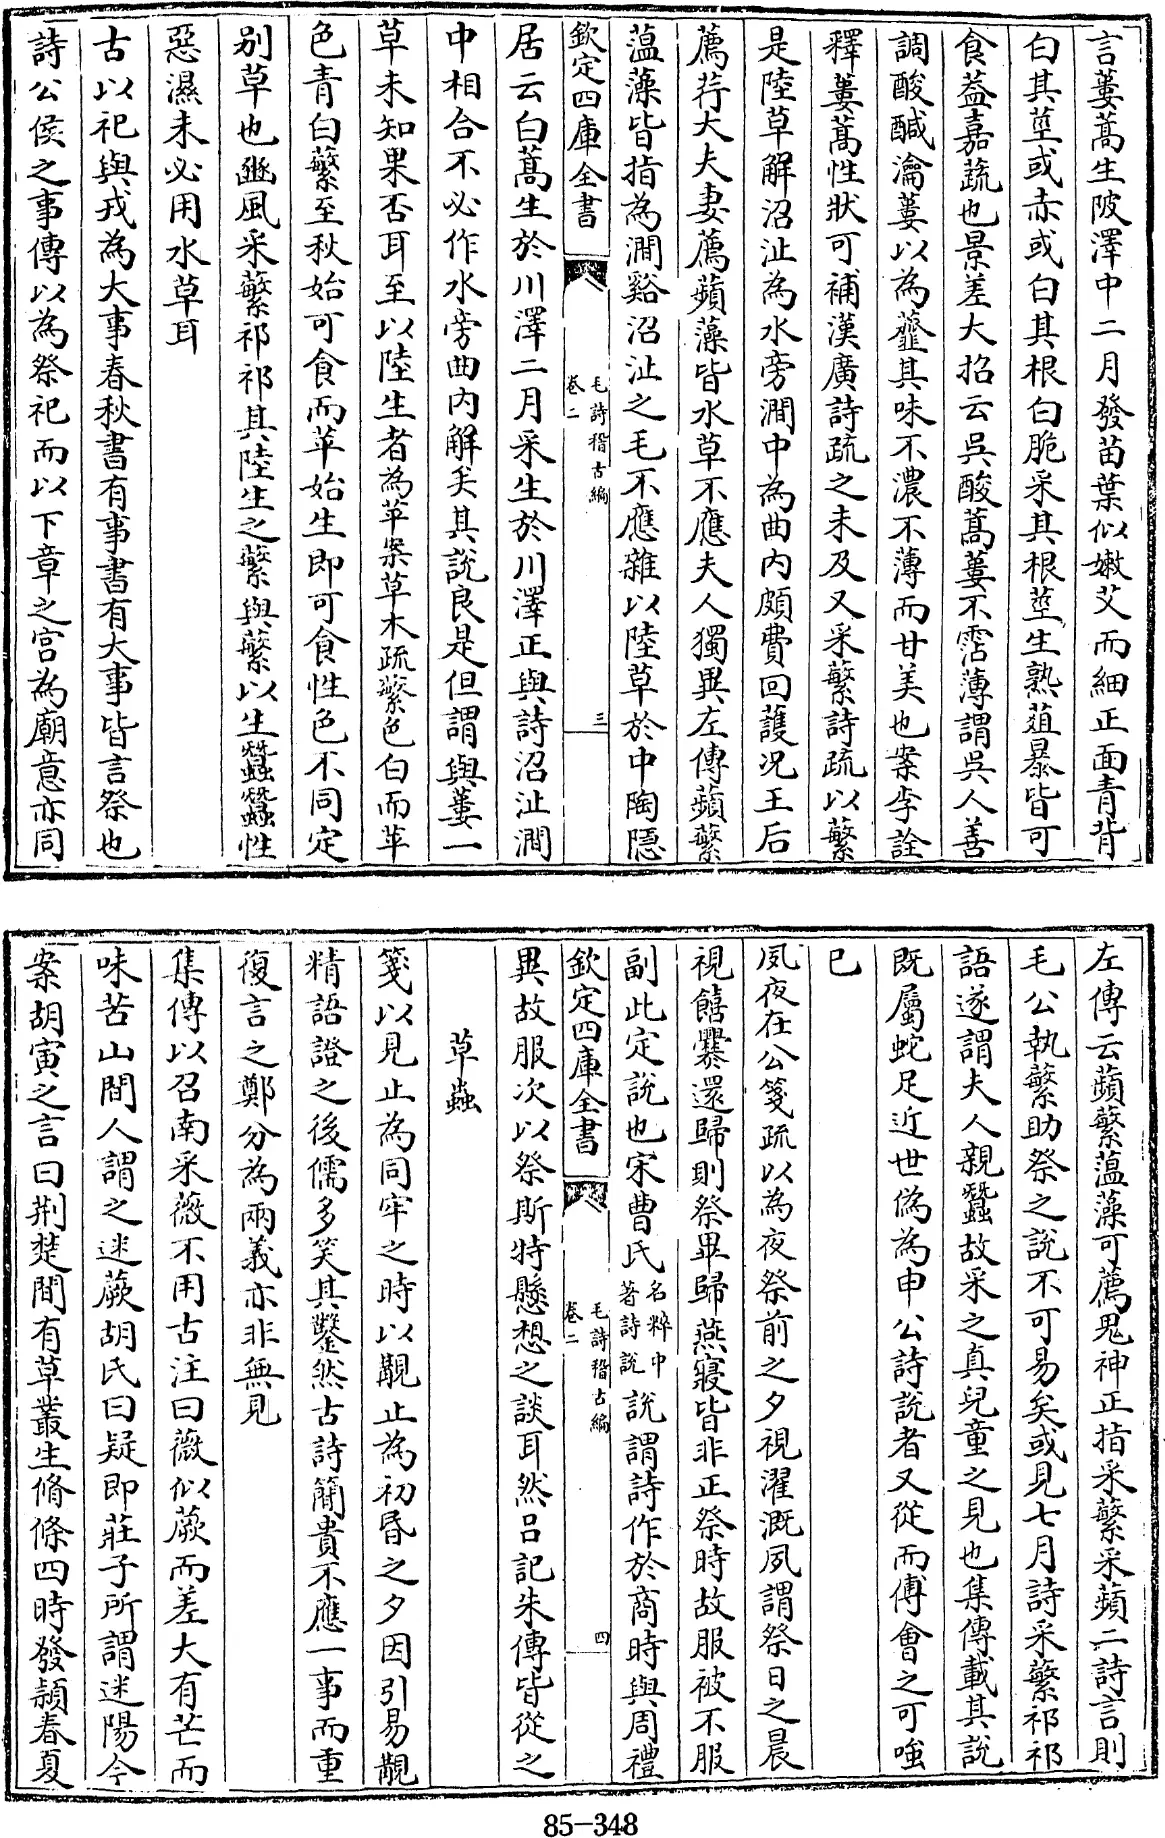 言蔞蒿生陂澤中二月發苗葉似嫩艾而細正面青背
白其莖或赤或白其根白脆采其根莖生熟葅暴皆可
食葢嘉蔬也景差大招云吳酸蒿蔞不霑薄謂吳人善
調酸醎瀹蔞以為虀其味不濃不薄而甘美也案李詮
釋蔞蒿性狀可補漢廣詩疏之未及又采蘩詩疏以蘩
是陸草解沼沚為水旁澗中為曲内頗費回護况王后
薦荇大夫妻薦蘋藻皆水草不應夫人獨異左傳蘋蘩
薀藻皆指為澗谿沼沚之毛不應雜以陸草於中陶隠
欽定四庫全書
毛詩稽古編
卷二
三
居云白蒿生於川澤二月采生於川澤正與詩沼沚澗
中相合不必作水旁曲内解矣其説良是但謂與蔞一
草未知果否耳至以陸生者為苹案草木疏蘩色白而苹
色青白蘩至秋始可食而苹始生即可食性色不同定
别草也豳風采蘩祁祁其陸生之蘩與蘩以生蠶蠶性
惡濕未必用水草耳
古以祀與戎為大事春秋書有事書有大事皆言祭也
詩公侯之事傳以為祭祀而以下章之宫為廟意亦同
左傳云蘋蘩薀藻可薦鬼神正指采蘩采蘋二詩言則
毛公執蘩助祭之説不可易矣或見七月詩采蘩祁祁
語遂謂夫人親蠶故采之真兒童之見也集傳載其説
既屬蛇足近世偽為申公詩説者又從而傅會之可嗤
已
夙夜在公箋疏以為夜祭前之夕視濯溉夙謂祭日之晨
視饎爨還歸則祭畢歸燕寢皆非正祭時故服被不服
副此定説也宋曹氏名粹中著詩説説謂詩作於商時與周禮
欽定四庫全書
毛詩稽古編
卷二
四
異故服次以祭斯特懸想之談耳然吕記朱傳皆從之
草蟲
箋以見止為同牢之時以覯止為初昏之夕因引易覯
精語證之後儒多笑其鑿然古詩簡貴不應一事而重
復言之鄭分為兩義亦非無見
集傳以召南采薇不用古注曰薇似蕨而差大有芒而
味苦山間人謂之迷蕨胡氏曰疑即莊子所謂迷陽今
案胡寅之言曰荆楚間有草叢生脩條四時發穎春夏
85-348